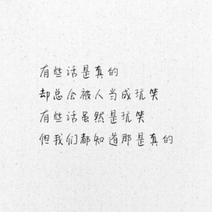 有些话是真的
却总会被人当成玩笑
有些话虽然是玩笑
但我们都知道那是真的